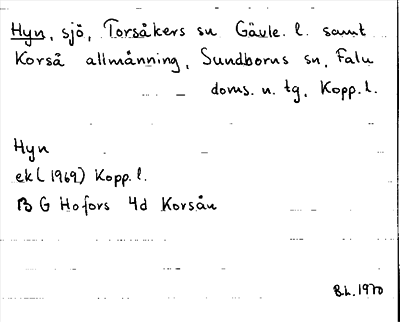 Hyn, sjö, Torsåkers sn Gävle. l. samt
Korså allmänning, Sundborns sn, Falu
doms. n. tg, Kopp. l.
Hyn
ek (1969) Kopp. l.
B G Hofors 4d Korsån
B.L. 1970